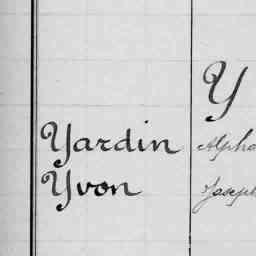 Y
Yardin Alpho
Yvon Joseph